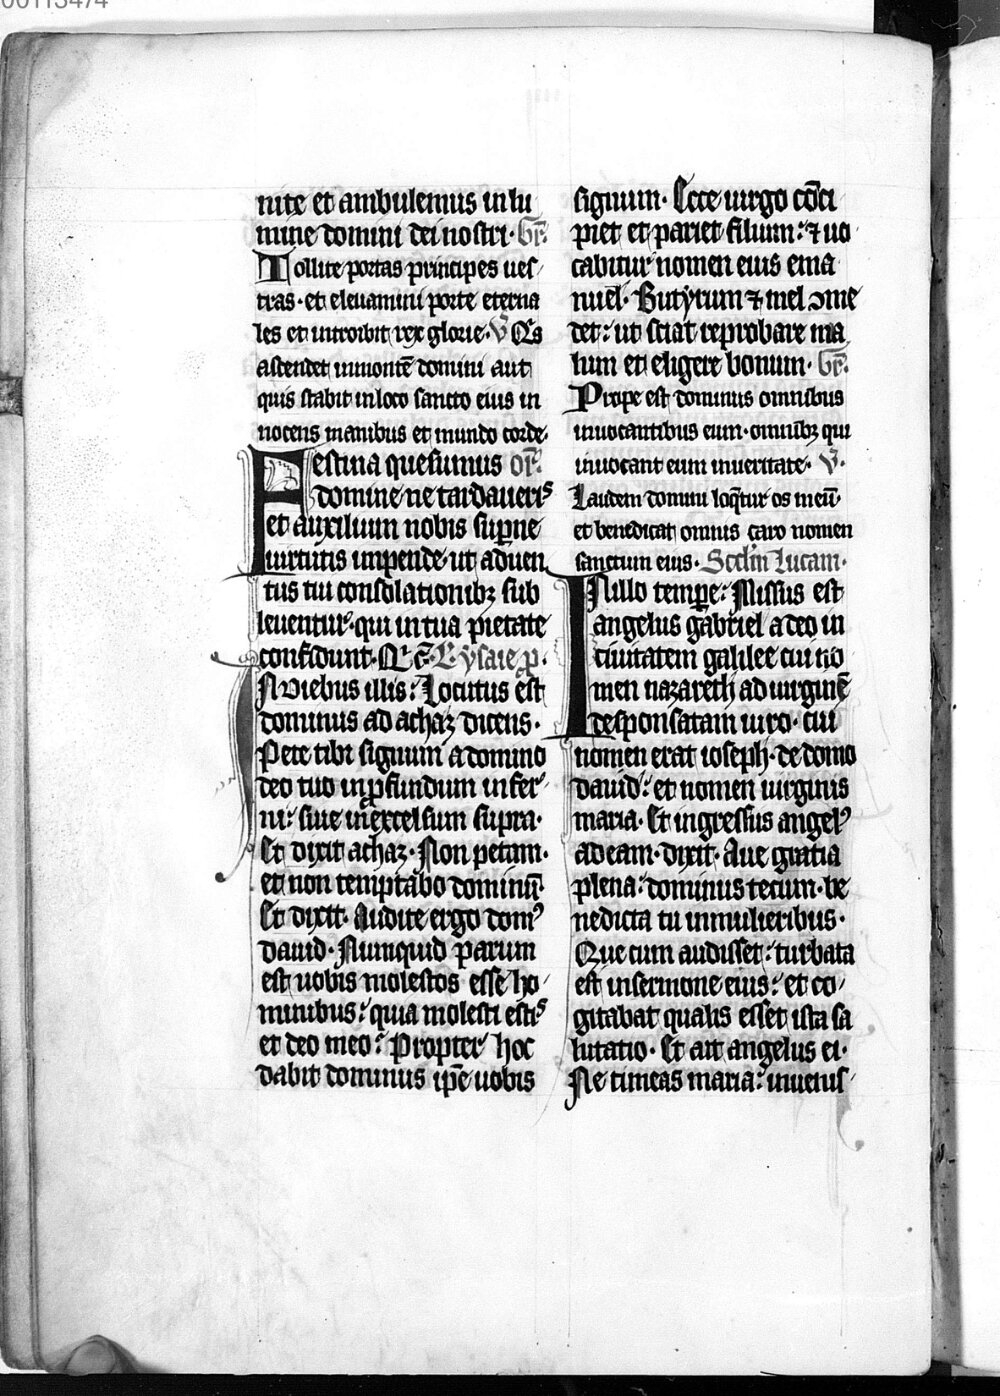 00113474
nite et ambulemus in lu
mine domini dei nostri· Gr̄.
Tollite portas principes ues
tras· et eleuamini porte eterna
les et introibit rex glorie· V̄ Q͛s
ascendet in montē domini aut
quis stabit in loco sancto eius in
nocens manibus et mundo corde·
Festina quesumus or̄.
domine ne tardaueris
et auxilium nobis sup̄ne
uirtutis impende· ut aduen
tus tui consolationibꝫ sub
leuentur· qui in tua pietate
confidunt· Q͛ c̄· Eysaie ꝓ.
In diebus illis: Locutus est
dominus ad achaz dicens·
Pete tibi signum a domino
deo tuo in ꝓfundum infer
ni: siue in excelsum supra·
Et dixit achaz· Non petam·
et non temptabo dominū·
Et dixit· Audite ergo domꝰ
dauid· Numquid parum
est uobis molestos esse ho
minibus: quia molesti estis
et deo meo? Propter hoc
dabit dominus ip̄e uobis
signum· Ecce uirgo cōci
piet et pariet filium: ⁊ uo
cabitur nomen eius ema
nuel· Butyrum ⁊ mel ꝯme
det: ut sciat reprobare ma
lum et eligere bonum· Gr̄.
Prope est dominus omnibus
inuocantibus eum· omnibꝫ qui
inuocant eum in ueritate· V̄·
Laudem domini loq̄tur os meū·
et benedicat omnis caro nomen
sanctum eius· Scd̄m Lucam·
In illo temp̄e: Missus est
angelus gabriel a deo in
ciuitatem galilee cui no
men nazareth ad uirginē
desponsatam uiro· cui
nomen erat ioseph· de domo
dauid: et nomen uirginis
maria· Et ingressus angelꝰ
ad eam· dixit· Aue gratia
plena: dominus tecum· be
nedicta tu in mulieribus·
Que cum audisset: turbata
est in sermone eius: et co
gitabat qualis esset ista sa
lutatio· Et ait angelus ei·
Ne timeas maria: inuenis